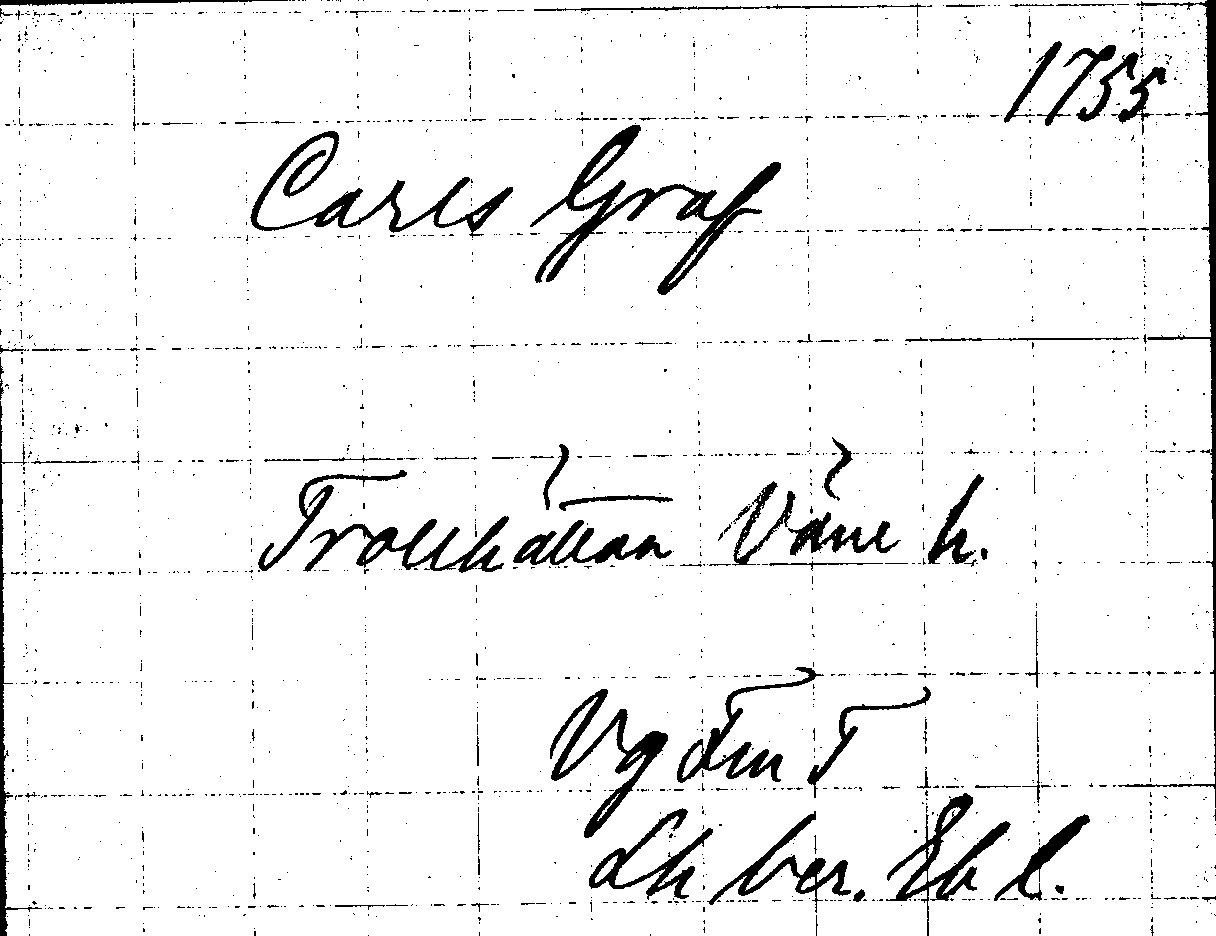 1755
Carls Graf
Trollhättan Väne h.
Vg Fm T
Lh ber. Eb l.